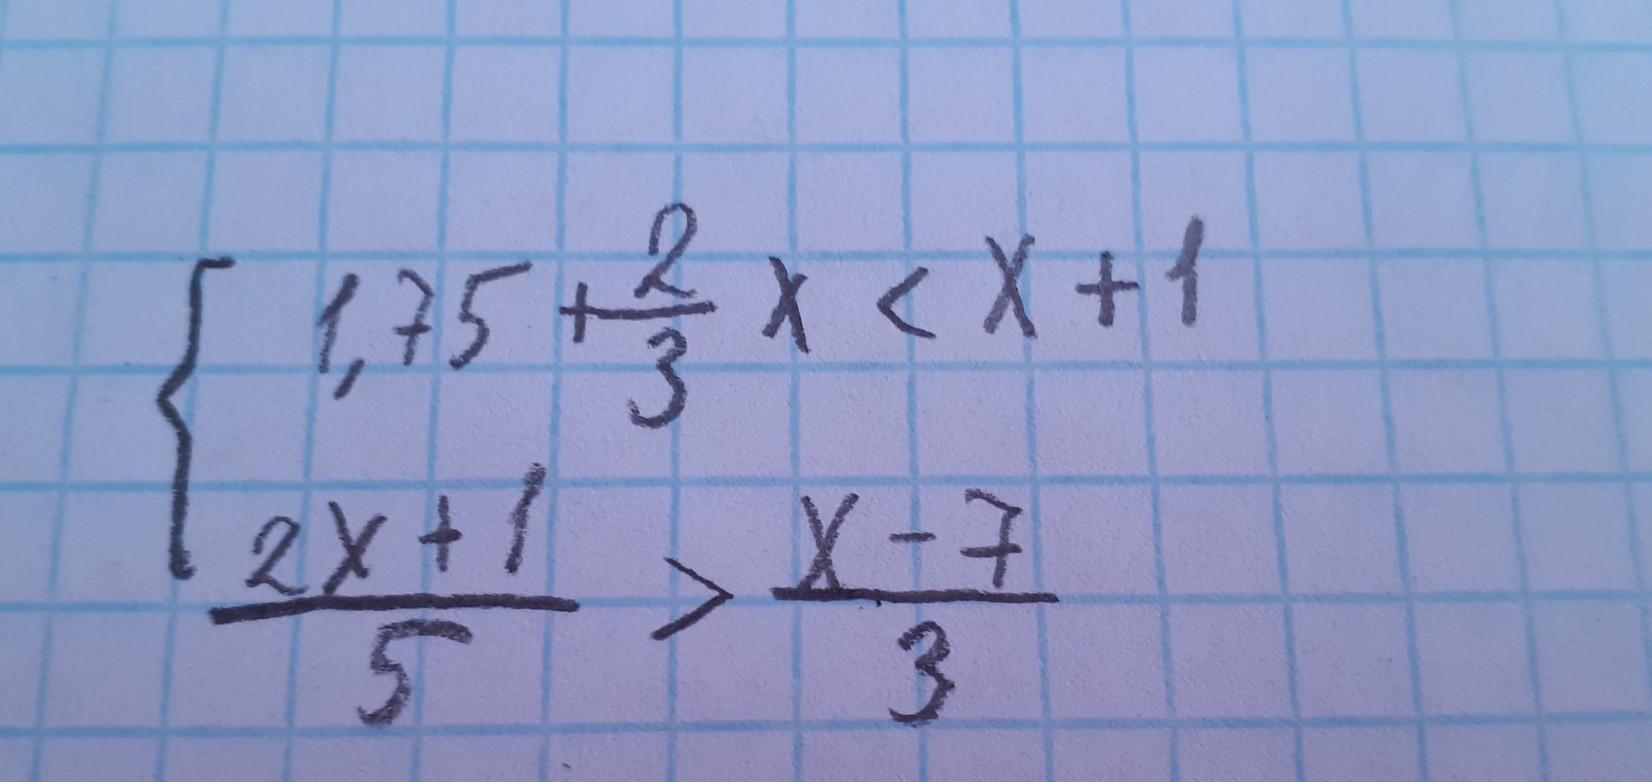 { 1,75 + 2/3 x < x + 1
(2x + 1)/5 > (x - 7)/3